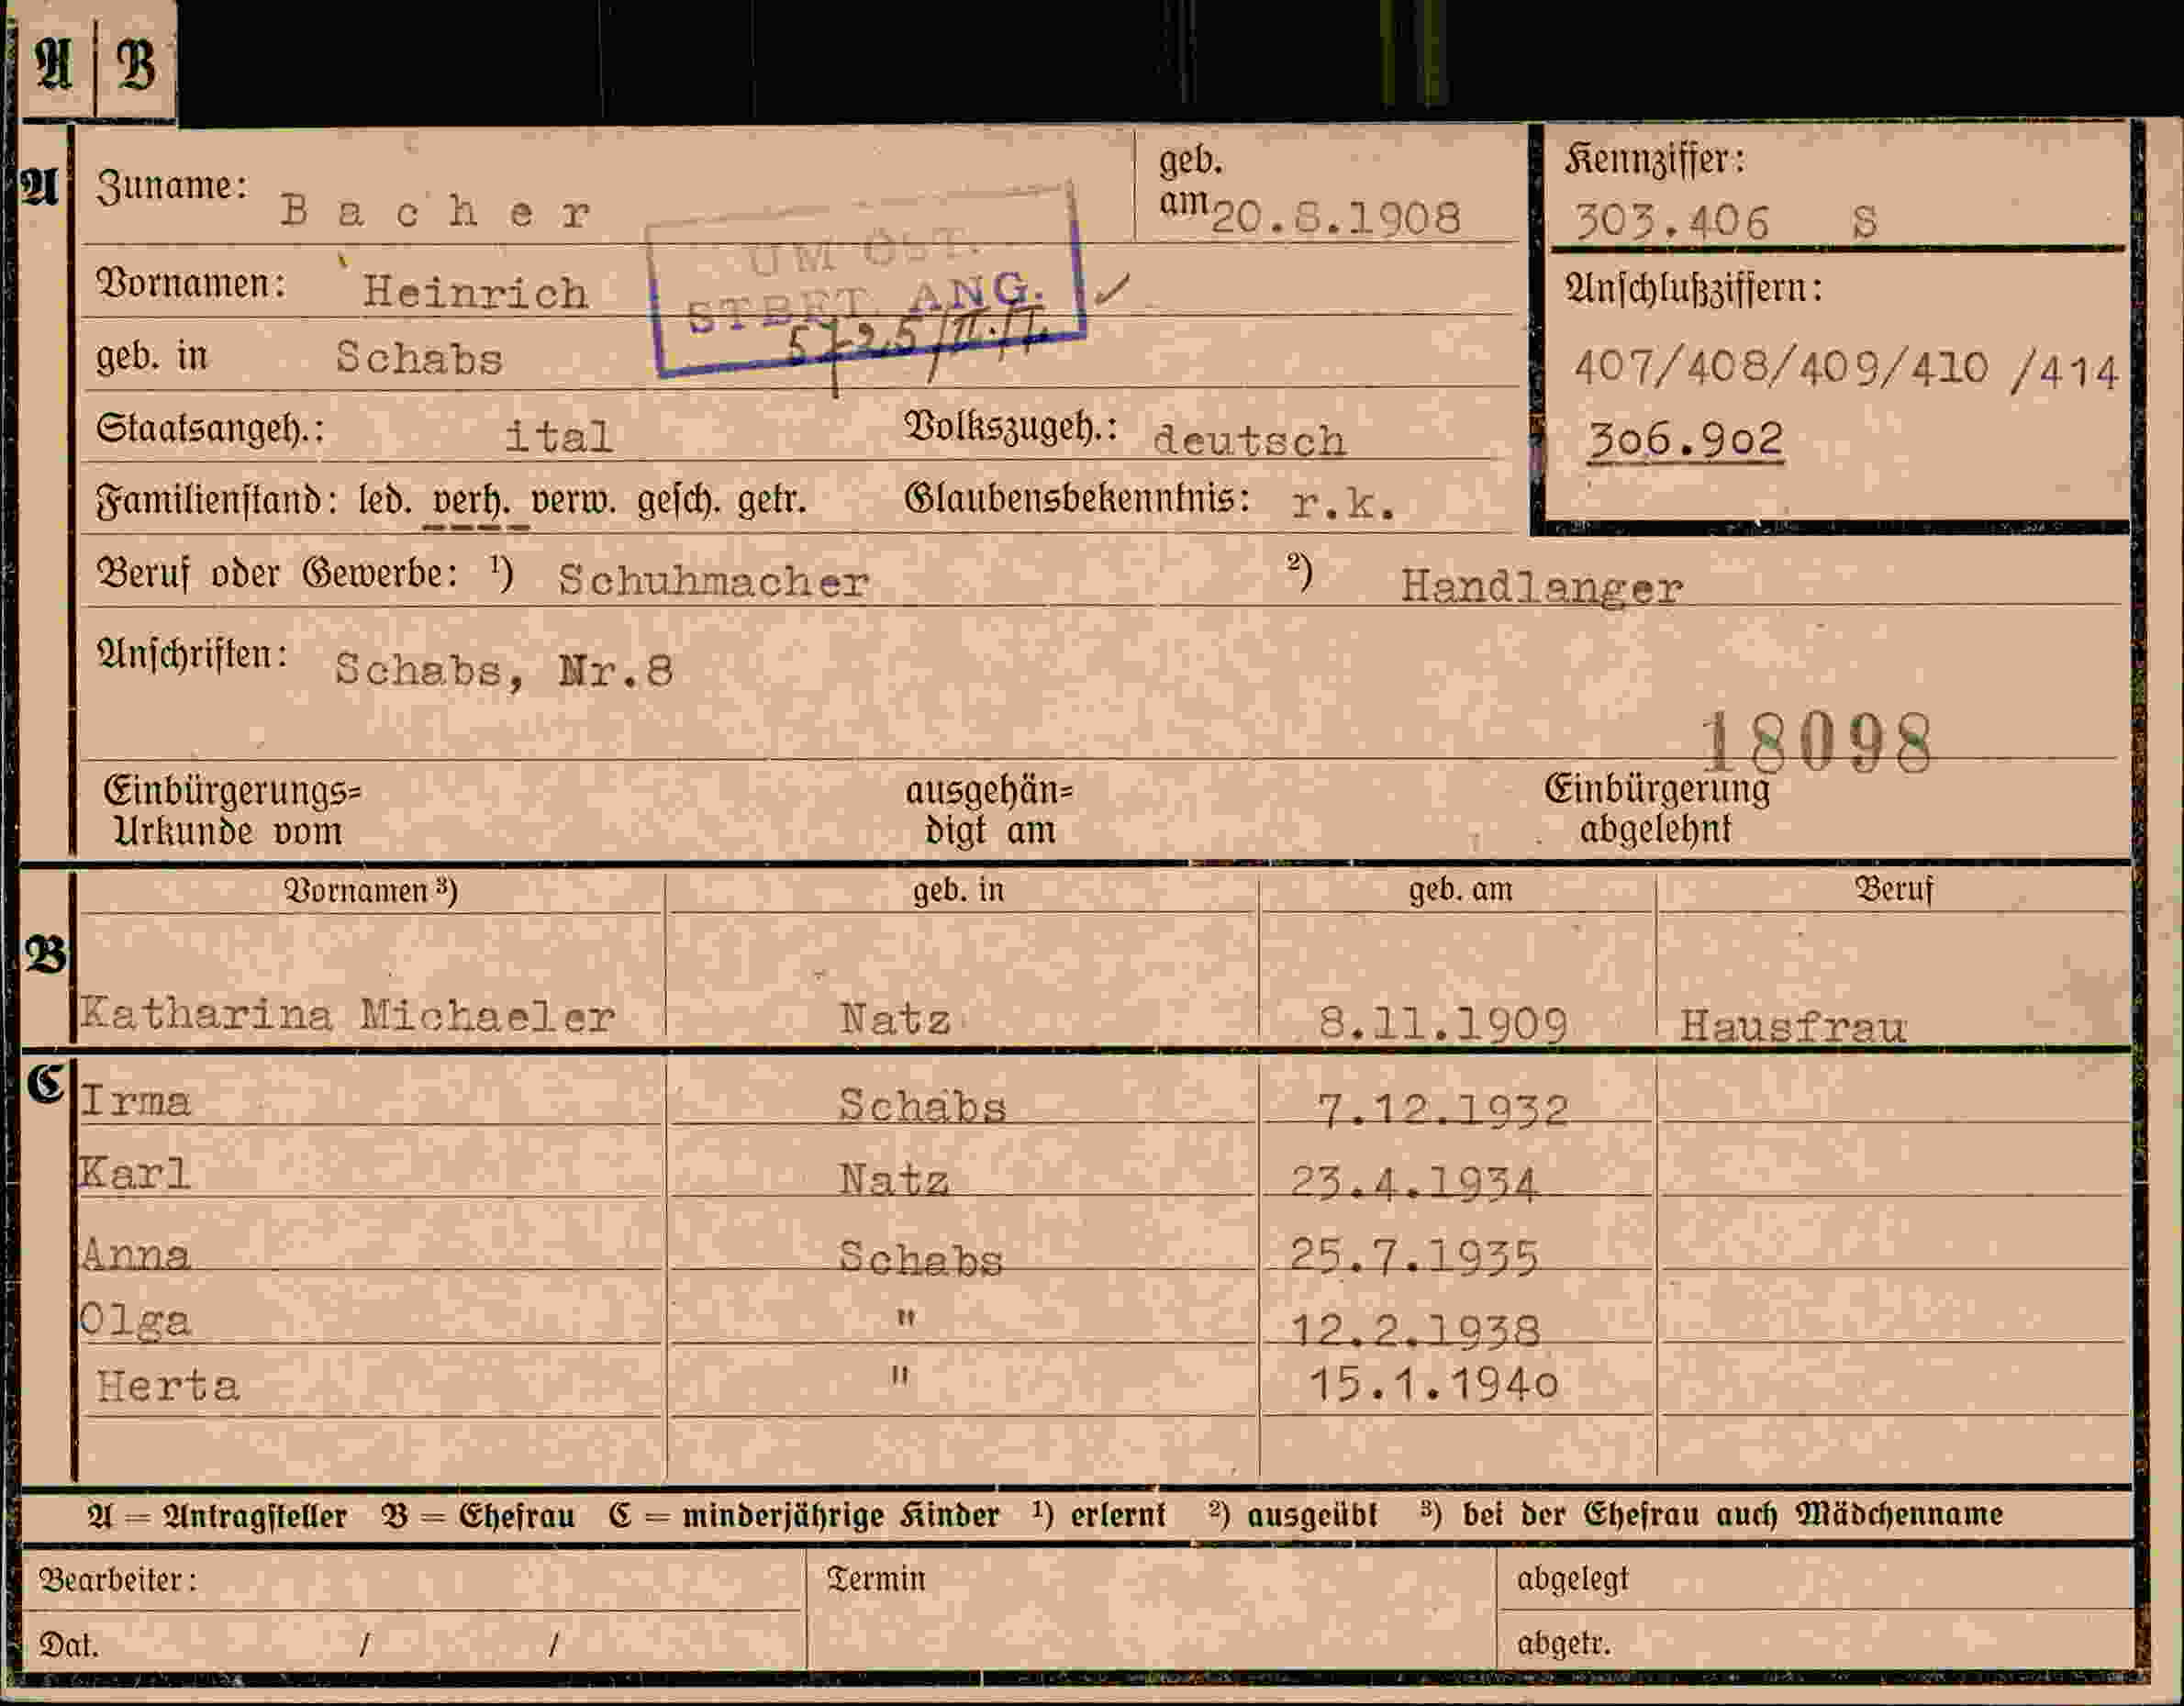 A | B
A
Zuname: Bacher
geb. am 20.8.1908
Kennziffer:
303.406 S
Vornamen: Heinrich
UM ÖST.
STBET. ANG.
Anschlußziffern:
geb. in Schabs
407/408/409/410 /414
Staatsangeh.: ital Volkszugeh.: deutsch
306.902
Familienstand: led. verh. verw. gesch. getr. Glaubensbekenntnis: r.k.
Beruf oder Gewerbe: ¹) Schuhmacher ²) Handlanger
Anschriften: Schabs, Nr.8
18098
Einbürgerungs= ausgehän= Einbürgerung
Urkunde vom digt am abgelehnt
Vornamen ³) geb. in geb. am Beruf
B
Katharina Michaeler Natz 8.11.1909 Hausfrau
C
Irma Schabs 7.12.1932
Karl Natz 23.4.1934
Anna Schabs 25.7.1935
Olga " 12.2.1938
Herta " 15.1.1940
A = Antragsteller B = Ehefrau C = minderjährige Kinder ¹) erlernt ²) ausgeübt ³) bei der Ehefrau auch Mädchenname
Bearbeiter: Termin abgelegt
Dat. / / abgetr.